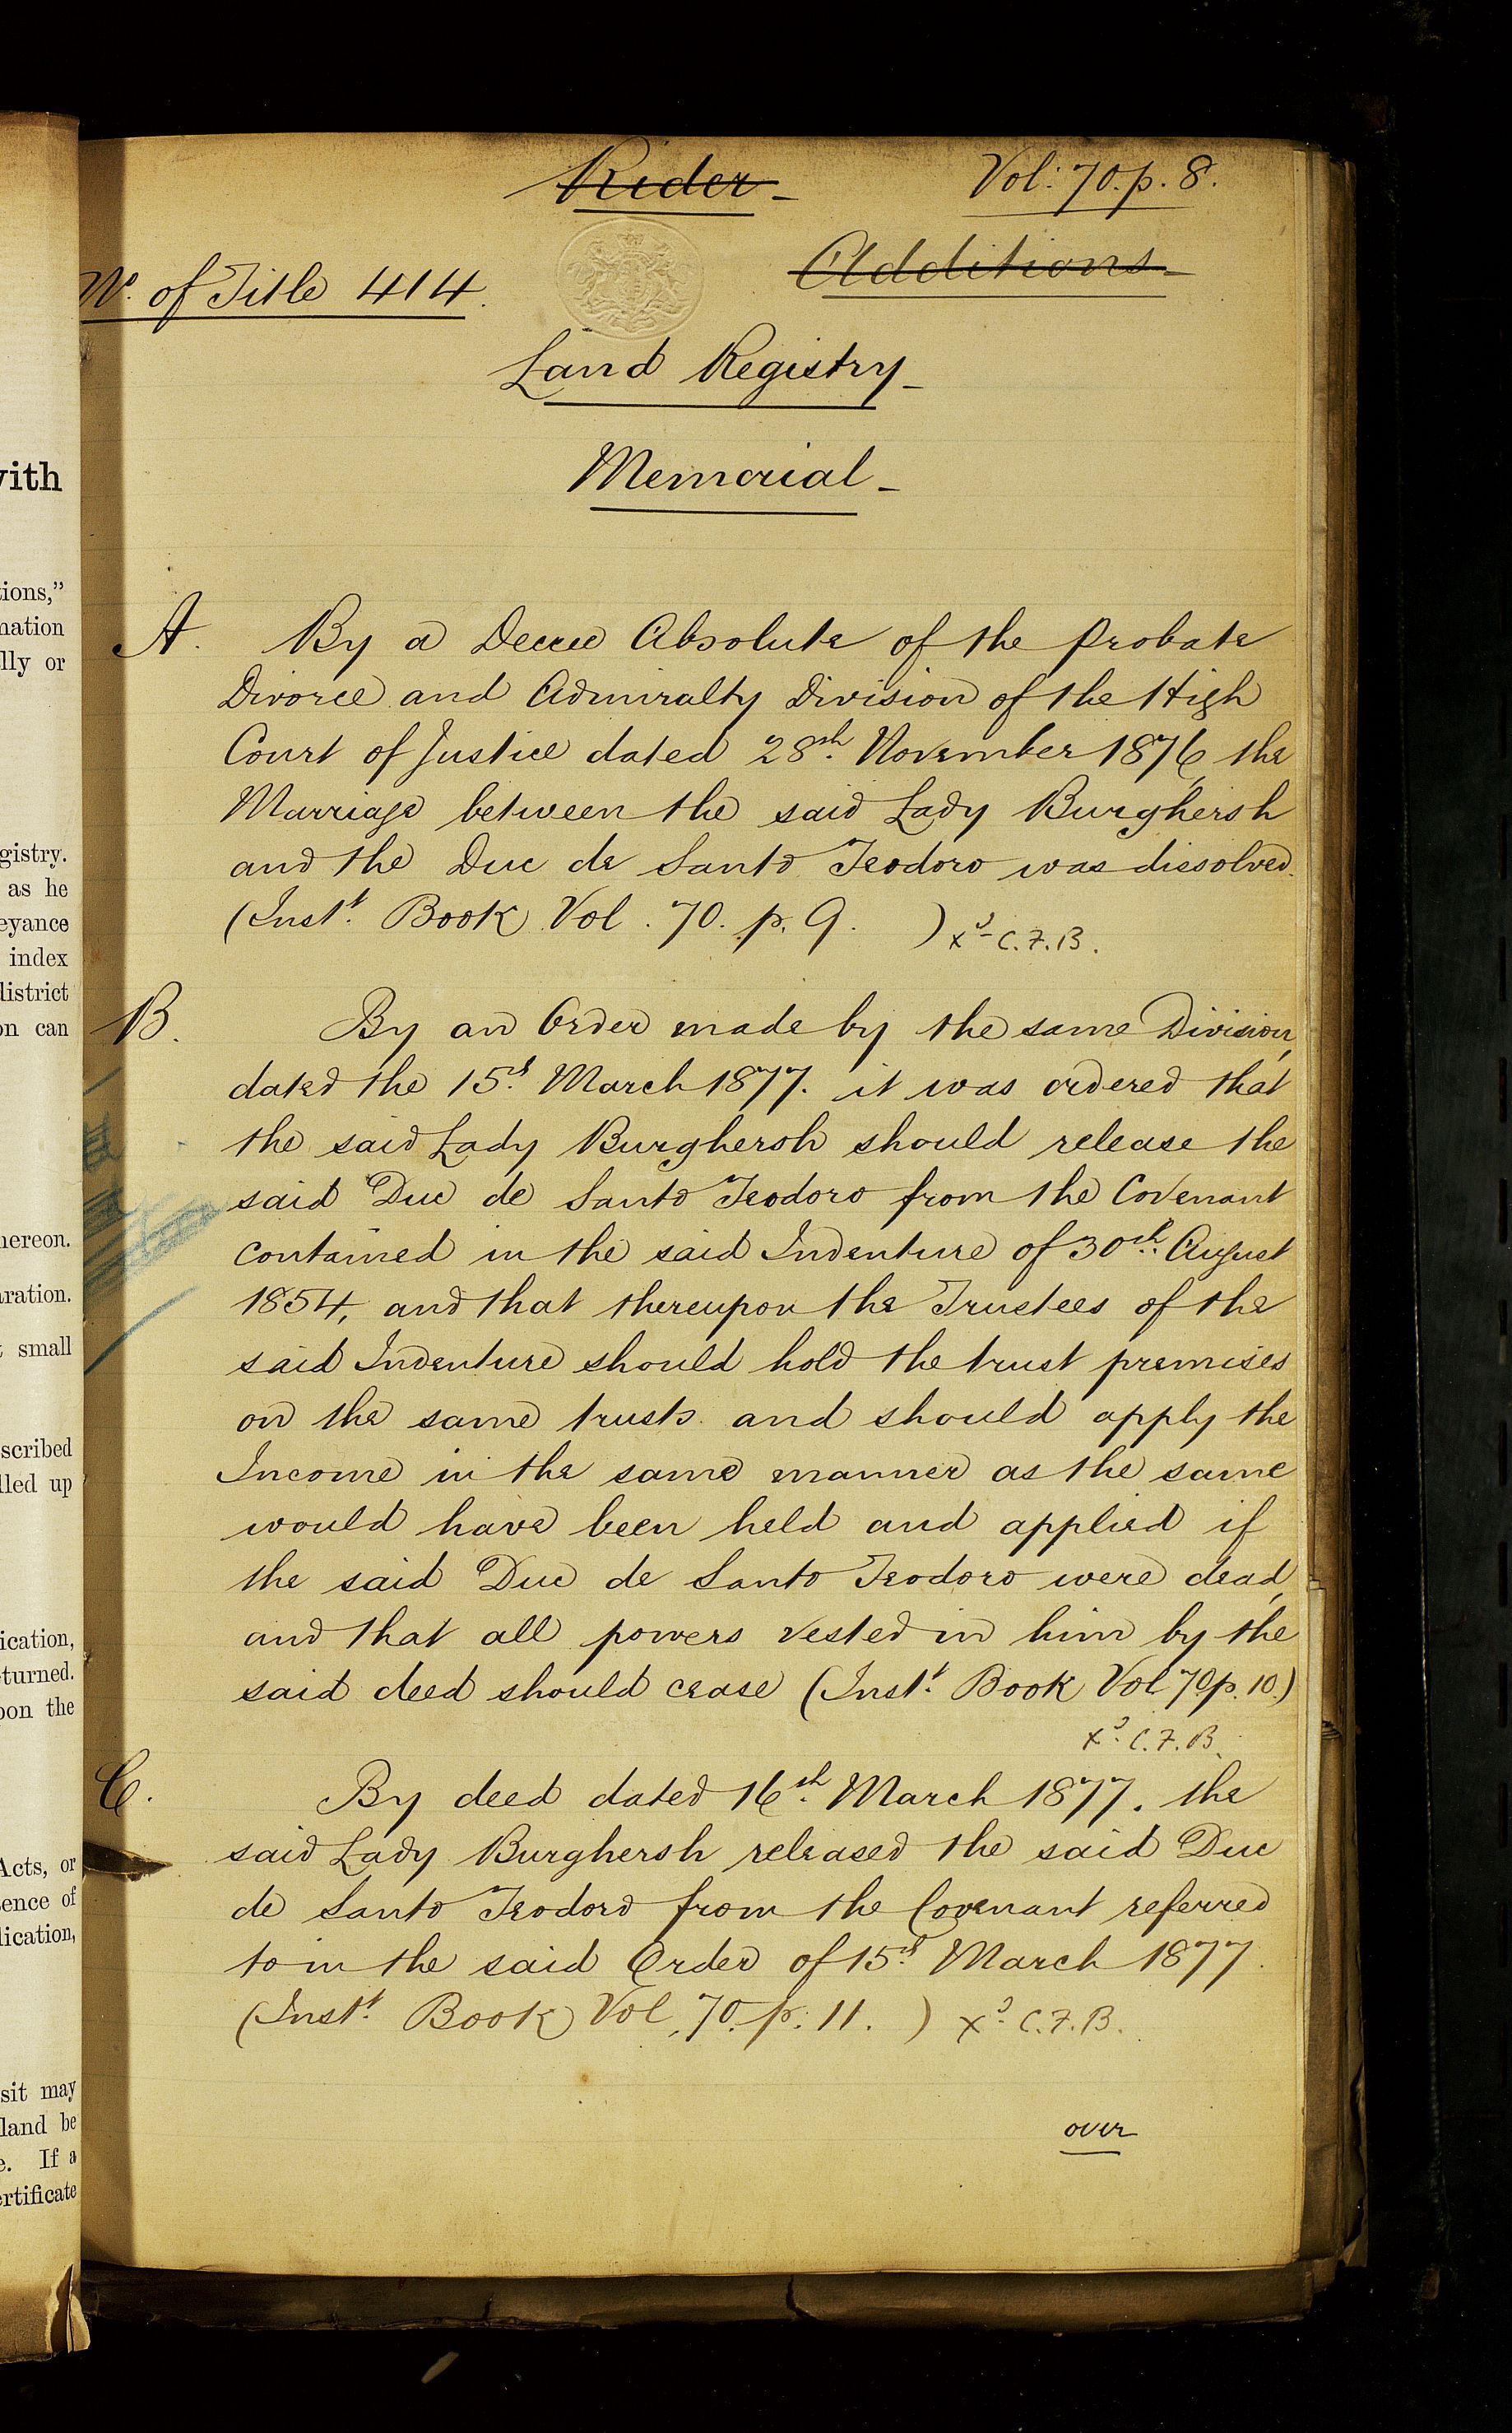 Rider
Vol: 70. p. 8.
Additions
No. of Title 414.
Land Registry
Memorial
A. By a Decree Absolute of the Probate
Divorce and Admiralty Division of the High
Court of Justice dated 28th November 1876, the
Marriage between the said Lady Burghersh
and the Duc de Santo Teodoro was dissolved.
(Instt. Book Vol. 70. p. 9. ) xd C.F.B.
B. By an Order made by the same Division,
dated the 15th March 1877. it was ordered that
the said Lady Burghersh should release the
said Duc de Santo Teodoro from the Covenant
contained in the said Indenture of 30th August
1854, and that thereupon the Trustees of the
said Indenture should hold the trust premises
on the same trusts and should apply the
Income in the same manner as the same
would have been held and applied if
the said Duc de Santo Teodoro were dead,
and that all powers vested in him by the
said deed should cease (Instt. Book Vol 70 p. 10.)
xd C.F.B.
C. By deed dated 16th March 1877. the
said Lady Burghersh released the said Duc
de Santo Teodoro from the Covenant referred
to in the said Order of 15th March 1877.
(Instt. Book Vol. 70. p. 11. ) xd C.F.B.
over
with
tions,"
mation
lly or
gistry.
as he
eyance
index
district
on can
hereon.
aration.
small
scribed
lled up
ication,
turned.
pon the
Acts, or
sence of
lication,
sit may
land be
e. If a
ertificate